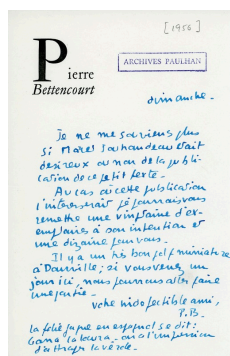 [1956]
Pierre
Bettencourt
ARCHIVES PAULHAN
dimanche.
Je ne me souviens plus
si Marcel Jouhandeau était
desireux ou non de la publi-
cation de ce petit texte.
Au cas où cette publication
l'interesserait je pourrais vous
remettre une vingtaine d'ex-
emplaires à son intention et
une dizaine pour vous.
Il y a un très bon golf miniature
à Dauville; si vous venez un
jour ici nous pourrons aller faire
une partie.
votre indefectible ami,
P.B.
la folie en espagnol se dit:
Gana la